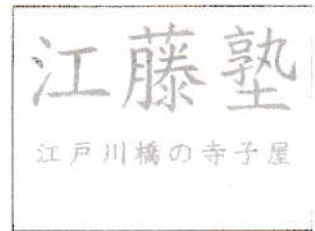 江藤塾
江戸川橋の寺子屋